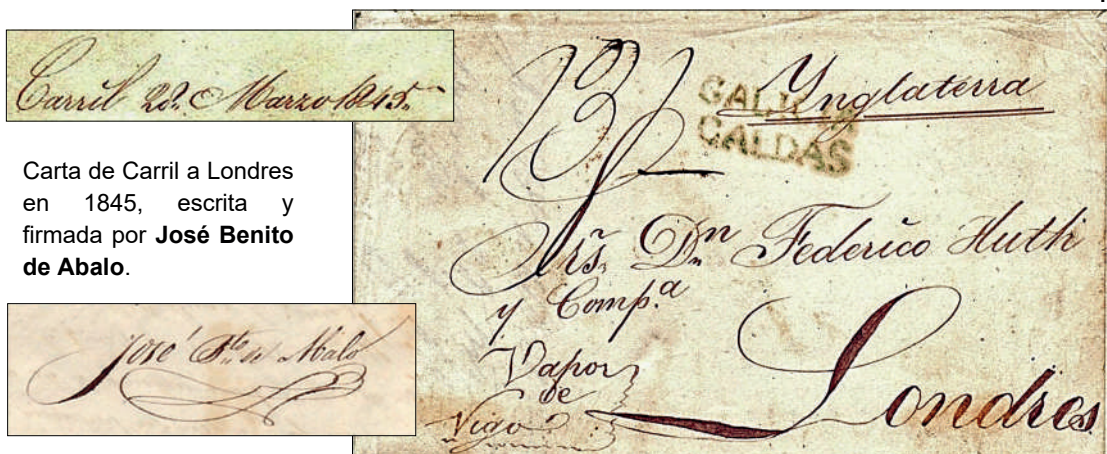 Carril 28. Marzo 1845.
Carta de Carril a Londres
en 1845, escrita y
firmada por José Benito
de Abalo.
José Bto de Abalo
Ynglaterra
GALICIA
CALDAS
Srs. Dn Federico Huth
y Comp.a
Vapor
de
Vigo
Londres